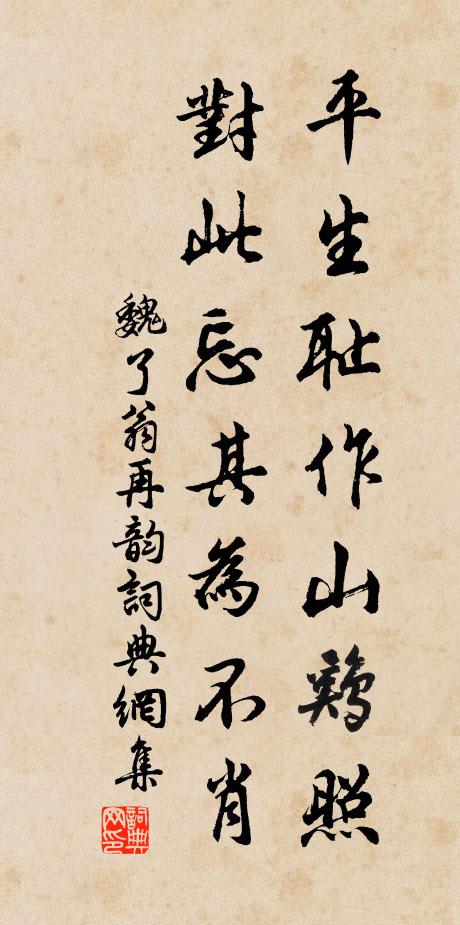 平生耻作山鷄照
對此忘其為不肖
魏了翁再韵詞典網集
詞典
网印